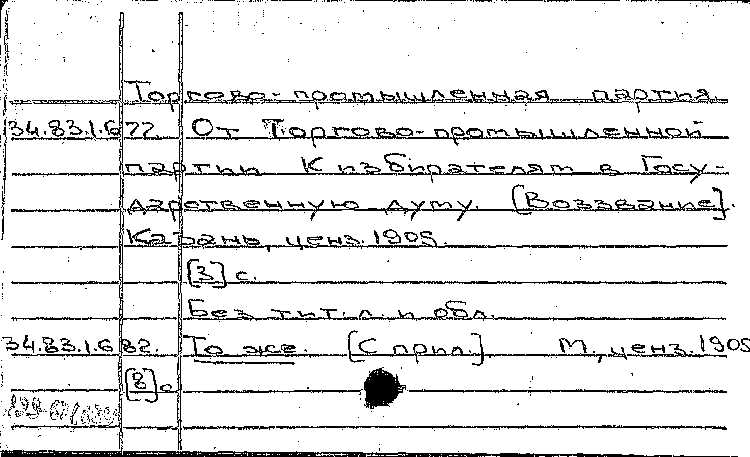 Торгово-промышленная партия.
34.83.1.677. От Торгово-промышленной
партии К избирателям в Госу-
дарственную думу. [Воззвание].
Казань, ценз. 1905.
[3] с.
Без тит. л. и обл.
34.83.1.682. То же. [С прил.]. М., ценз. 1905
[8] с